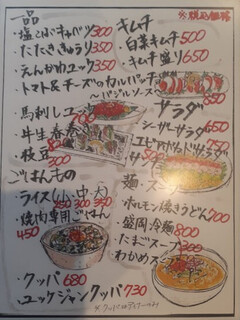 一品
・塩こんぶキャベツ 300
・たたききゅうり 350
・えんがわユッケ 350
・トマト&チーズのカルパッチョ
～バジルソース
・馬刺しユッケ 700
・牛生春巻
800
・枝豆
300
ごはんもの
・ライス(小・中・大)
250 300 350
・焼肉専用ごはん
450
・クッパ 680
・ユッケジャンクッパ 730
※税込価格
キムチ
・白菜キムチ 500
・キムチ盛り 650
サラダ
・シーザーサラダ 650
・エビアボカドサラダ
麺・スープ
・ホルモン焼きうどん 700
・盛岡冷麺 800
・たまごスープ 300
・わかめスープ